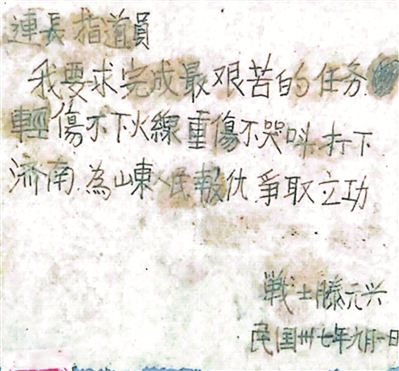 連長 指導員
我要求完成最艰苦的任务
輕傷不下火線重傷不哭叫.打下
济南.為山東人民報仇 爭取立功
戰士滕元兴
民国卅七年九月一日